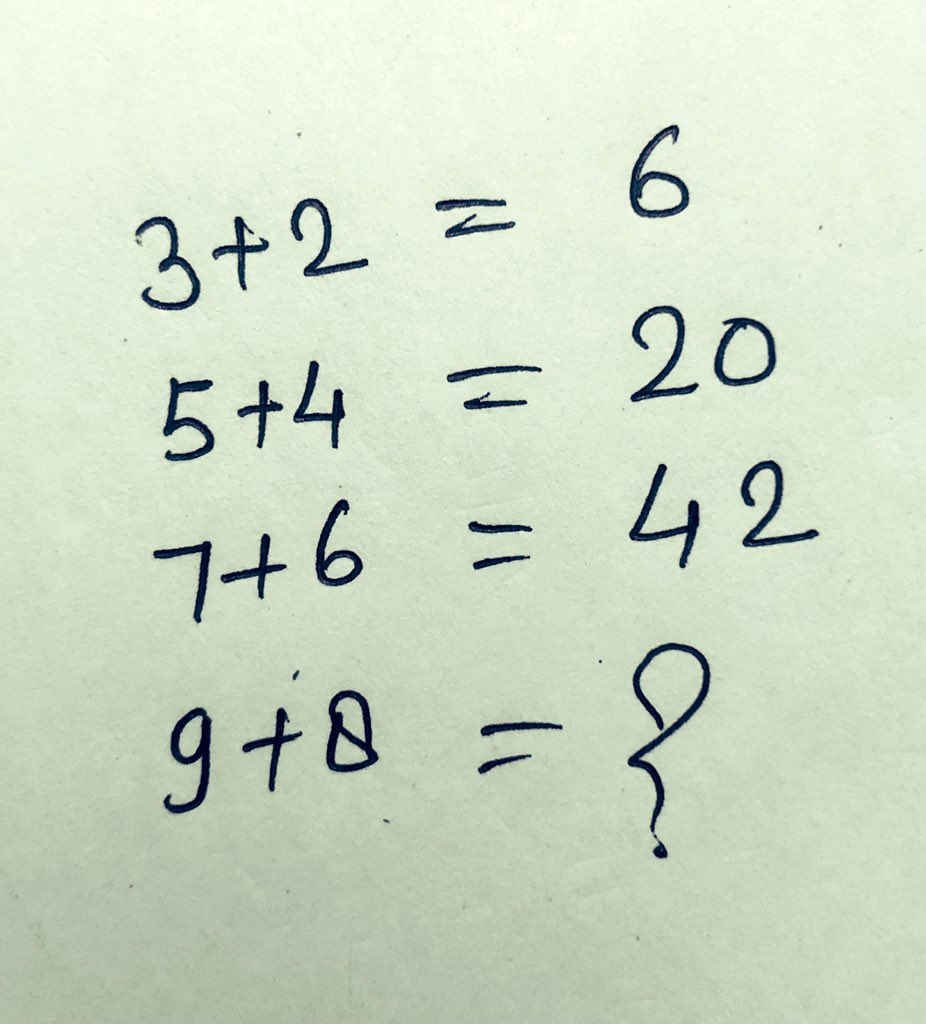 3+2 = 6
5+4 = 20
7+6 = 42
9+8 = ?